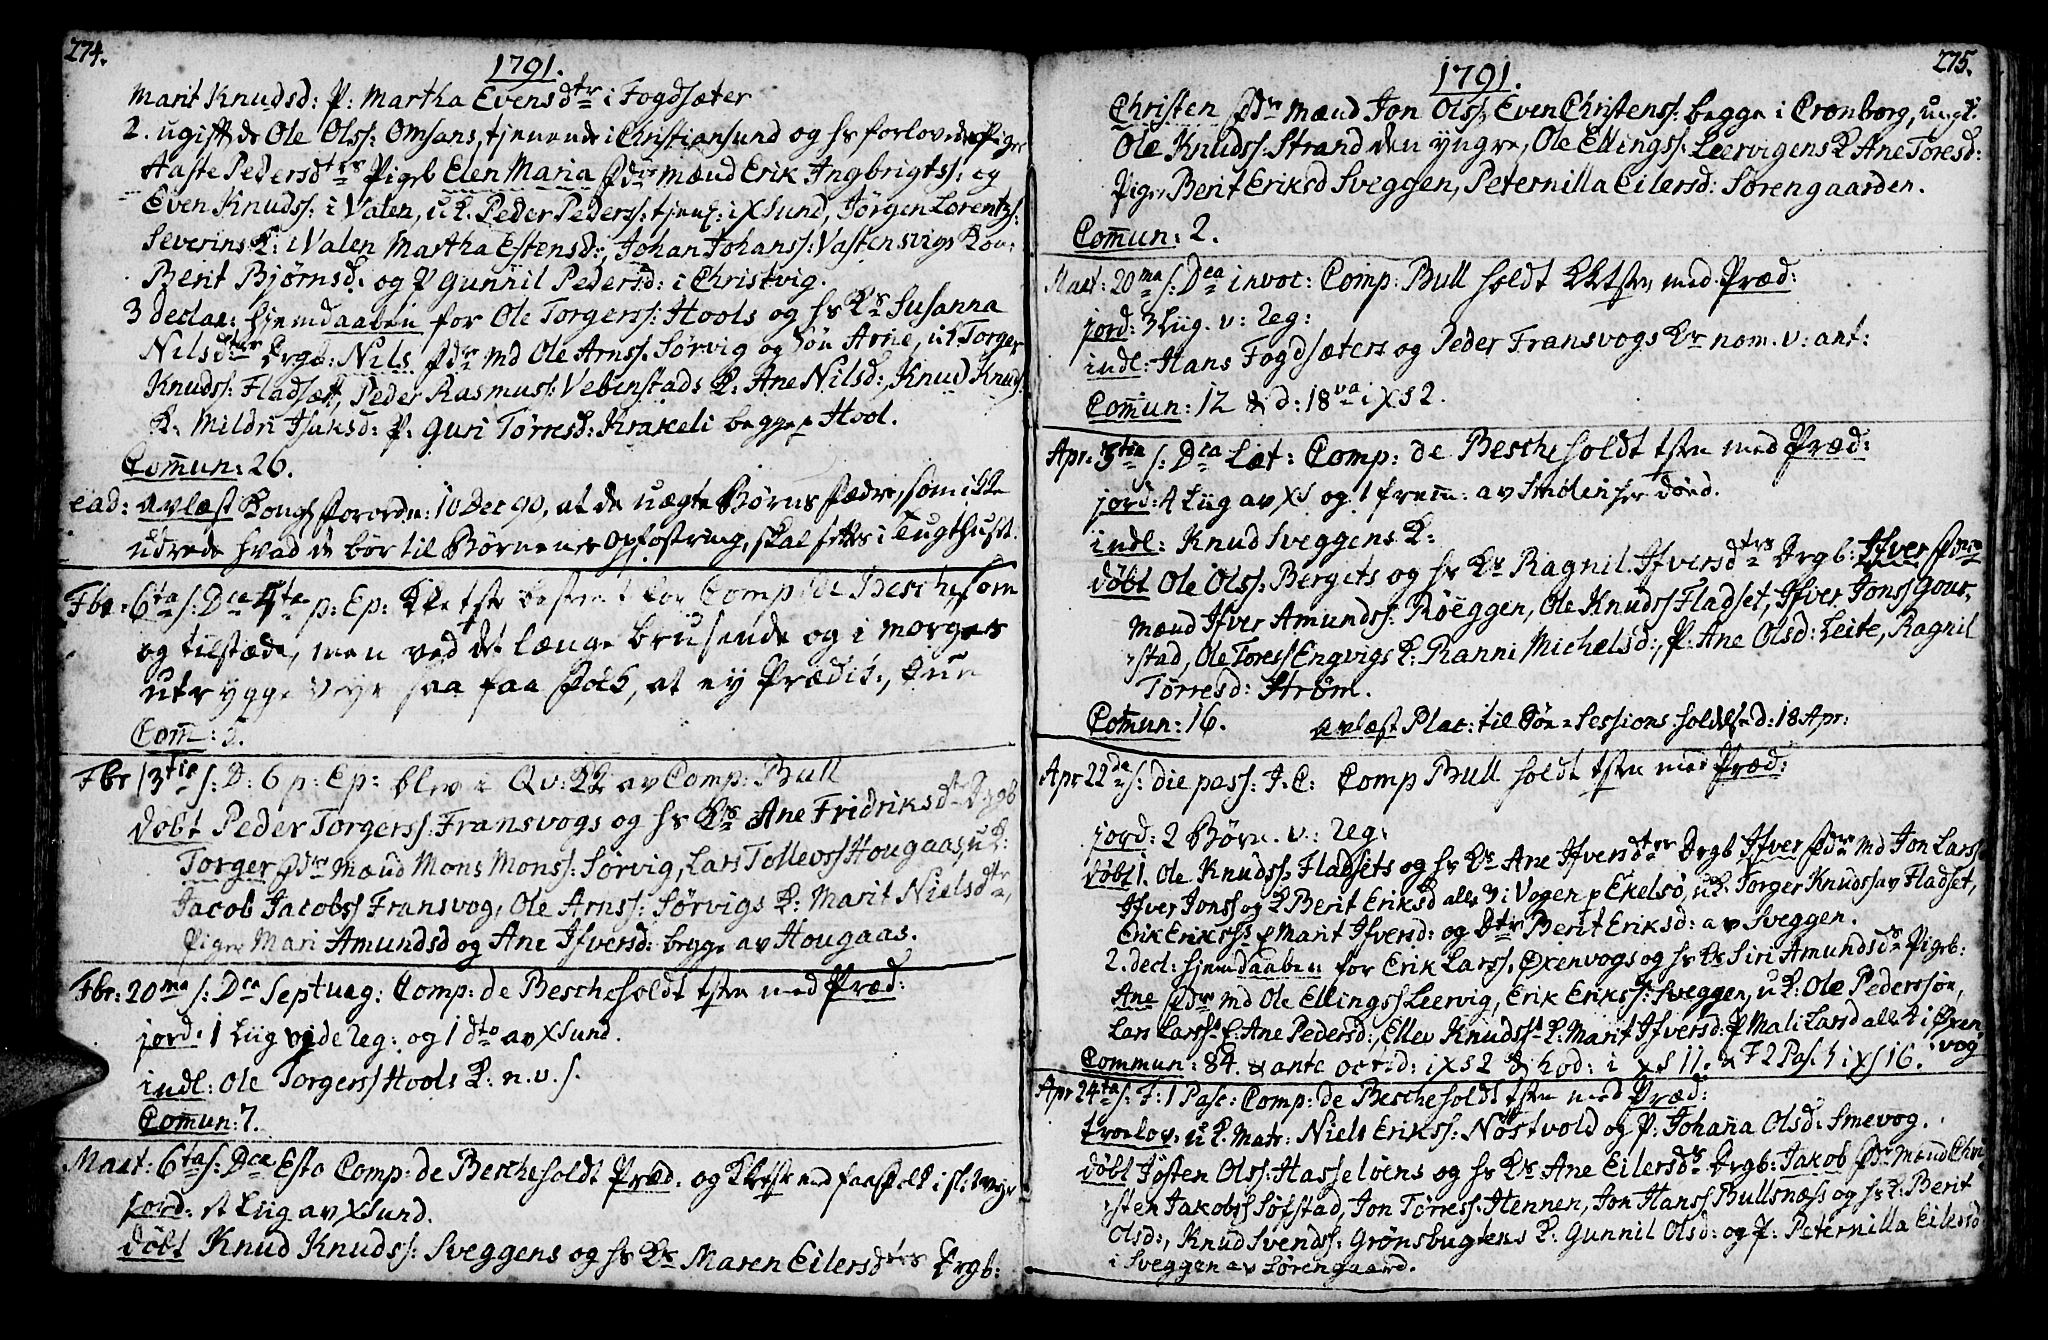 274.
1791.
Marit Knudsd: P: Martha Evensdtr i Fogdsæter
2. ugifte de Ole Olss: Omsans, tjenende i Christiansund og hs forlovede Pige
Aaste Pedersdtrs Pigeb Elen Maria fdre mænd Erik Ingbrigtss: og
Even Knudss: i Valen, u K. Peder Peders: tjen: i XSund, Jørgen Lorentzs:
Severins K: i Valen Martha Estensd:, Johan Johans: Vastensvigs Kon:
Berit Bjørnsd: og P Gunnil Pedersd: i Christvig.
3 declar: hjemdaaben for Ole Torgerss: Hools og hs Ks Susanna
Nilsdtrs Drgb: Nils fdre md Ole Arnss: Sørvig og Søn Arne, u K Torger
Knudss: Fladsæt, Peder Rasmuss: Vebenstads K. Ane Nilsd:, Knud Knuds
K. Mildri Isaksd: P. Guri Tørresd: Krakeli begge p Hool.
Comun: 26.
ead: avlæst Kongl forordn: 10 Dec 90, at de uægte Børns fædre, som ikke
udrede hvad de bør til Børnenes Opfostring, skal settes i Tugthuset.
Fbr: 6ta s: Dca 5ta p: Ep: Kketste bestemt for Comp: de Besche, som
og tilstæde, men ved det længe brusende og i morges
utrygge Vejr saa faa Folk, at ej Prædik:, kun
Com: 5.
Fbr 13tia s: D: 6 p: Ep: blev i Qv: KK av Comp: Bull
døbt Peder Torgerss: Fransvogs og hs Ks Ane Fridriksdtrs Drgb
Torger fdre mænd Mons Mons: Sørvig, Lars Tollevss Hougaas, u K:
Jacob Jacobss Fransvog, Ole Arnss: Sørvigs K: Marit Nielsdtr,
Piger Mari Amundsd og Ane Ifversd: begge av Hougaas.
Fbr: 20ma s: Dca Septuag: Comp: de Besche holdt tste med Præd:
jord: 1 Liig vide reg: og 1 dto av XSund.
indl: Ole Torgerss Hools K. n. v. s.
Comun: 7.
Mart: 6ta s: Dca Esto Comp: de Besche holdt Præd. og Kketste med faa folk i sl: Vejr
jord: et Liig av XSund.
døbt Knud Knudss: Sveggens og hs Ks Maren Eilersdtrs Drgb:
275.
1791.
Christen fdre mænd Jon Olss, Even Christenss: begge i Cronborg, ungk:
Ole Knudss: Strand den yngre, Ole Ellingss: Leervigens K Ane Toresd:
Piger Berit Eriksd Sveggen, Peternilla Eilersd: Sørengaarden.
Comun: 2.
Mart: 20ma s: Dca invoc: Comp: Bull holdt Kketste med Præd:
jord: 3 Liig. v: reg:
indl: Hans Fogdsæters og Peder Fransvogs Kr nom. v: ant:
Comun: 12 & d: 18va i XS 2.
Apr: 3tia s: Dca Læt: Comp: de Besche holdt tste med Præd:
jord: 4 Liig av XS og 1 frem: av Smølen her død.
indl: Knud Sveggens K:
døbt Ole Olss: Bergets og hs Ks Ragnil Ifversdtrs Drgb: Ifver fdre
Mænd Ifver Amundss: Røeggen, Ole Knudss Fladset, Ifver Jonss Gour-
stad, Ole Toress Engvigs K: Ranni Michelsd:, P: Ane Olsd: Leite, Ragnil
Tørresd: Strøm.
Comun: 16. avlæst Plac: til Søe-Sessions holdelse d: 18 Apr:
Apr 22da s: die pass: J. C: Comp Bull holdt tste med Præd:
jord: 2 Børn. v: reg:
døbt 1. Ole Knudss Fladsets og hs Ks Ane Ifversdtrs Drgb Ifver fdre Md Jon Larss
Ifver Jonss og K Berit Eriksd alle 3 i Vogen p Ekelsø, u K. Torger Knudss av Fladset,
Erik Erikss P Marit Ifversd: og Dtr Berit Eriksd: av Sveggen.
2. decl: hjemdaaben for Erik Larss: Oxenvogs og hs Ks Siri Amundsds Pigeb:
Ane fdre md Ole Ellingss Leervig, Erik Erikss: Sveggen, u K: Ole Pederssøn,
Lars Larss K. Ane Pedersd:, Ellev Knudss K. Marit Ifversd: P Mali Larsd alle i Oxen-
vog
Commun: 84. & ante octid: i XS 2 & hod: i XS 11. & F 2 Pasch i XS 16.
Apr 24ta s: F: 1 Pasc: Comp: de Besche holdt tste med Præd:
troelov. u K. Matr: Niels Erikss: Nøstvold og P: Johana Olsd: Smevog.
døbt Jøsten Olss: Hasseløens og hs Ks Ane Eilersds Drgb: Jakob fdr Mænd Chri-
sten Jakobss Søfstad, Jon Torress: Hennen, Jon Hanss Bullsnæss og hs K: Berit
Olsd:, Knud Svendss: Grønsbugtens K: Gunnil Olsd: og P: Peternilla Eilersd
i Sveggen av Sørengaard.